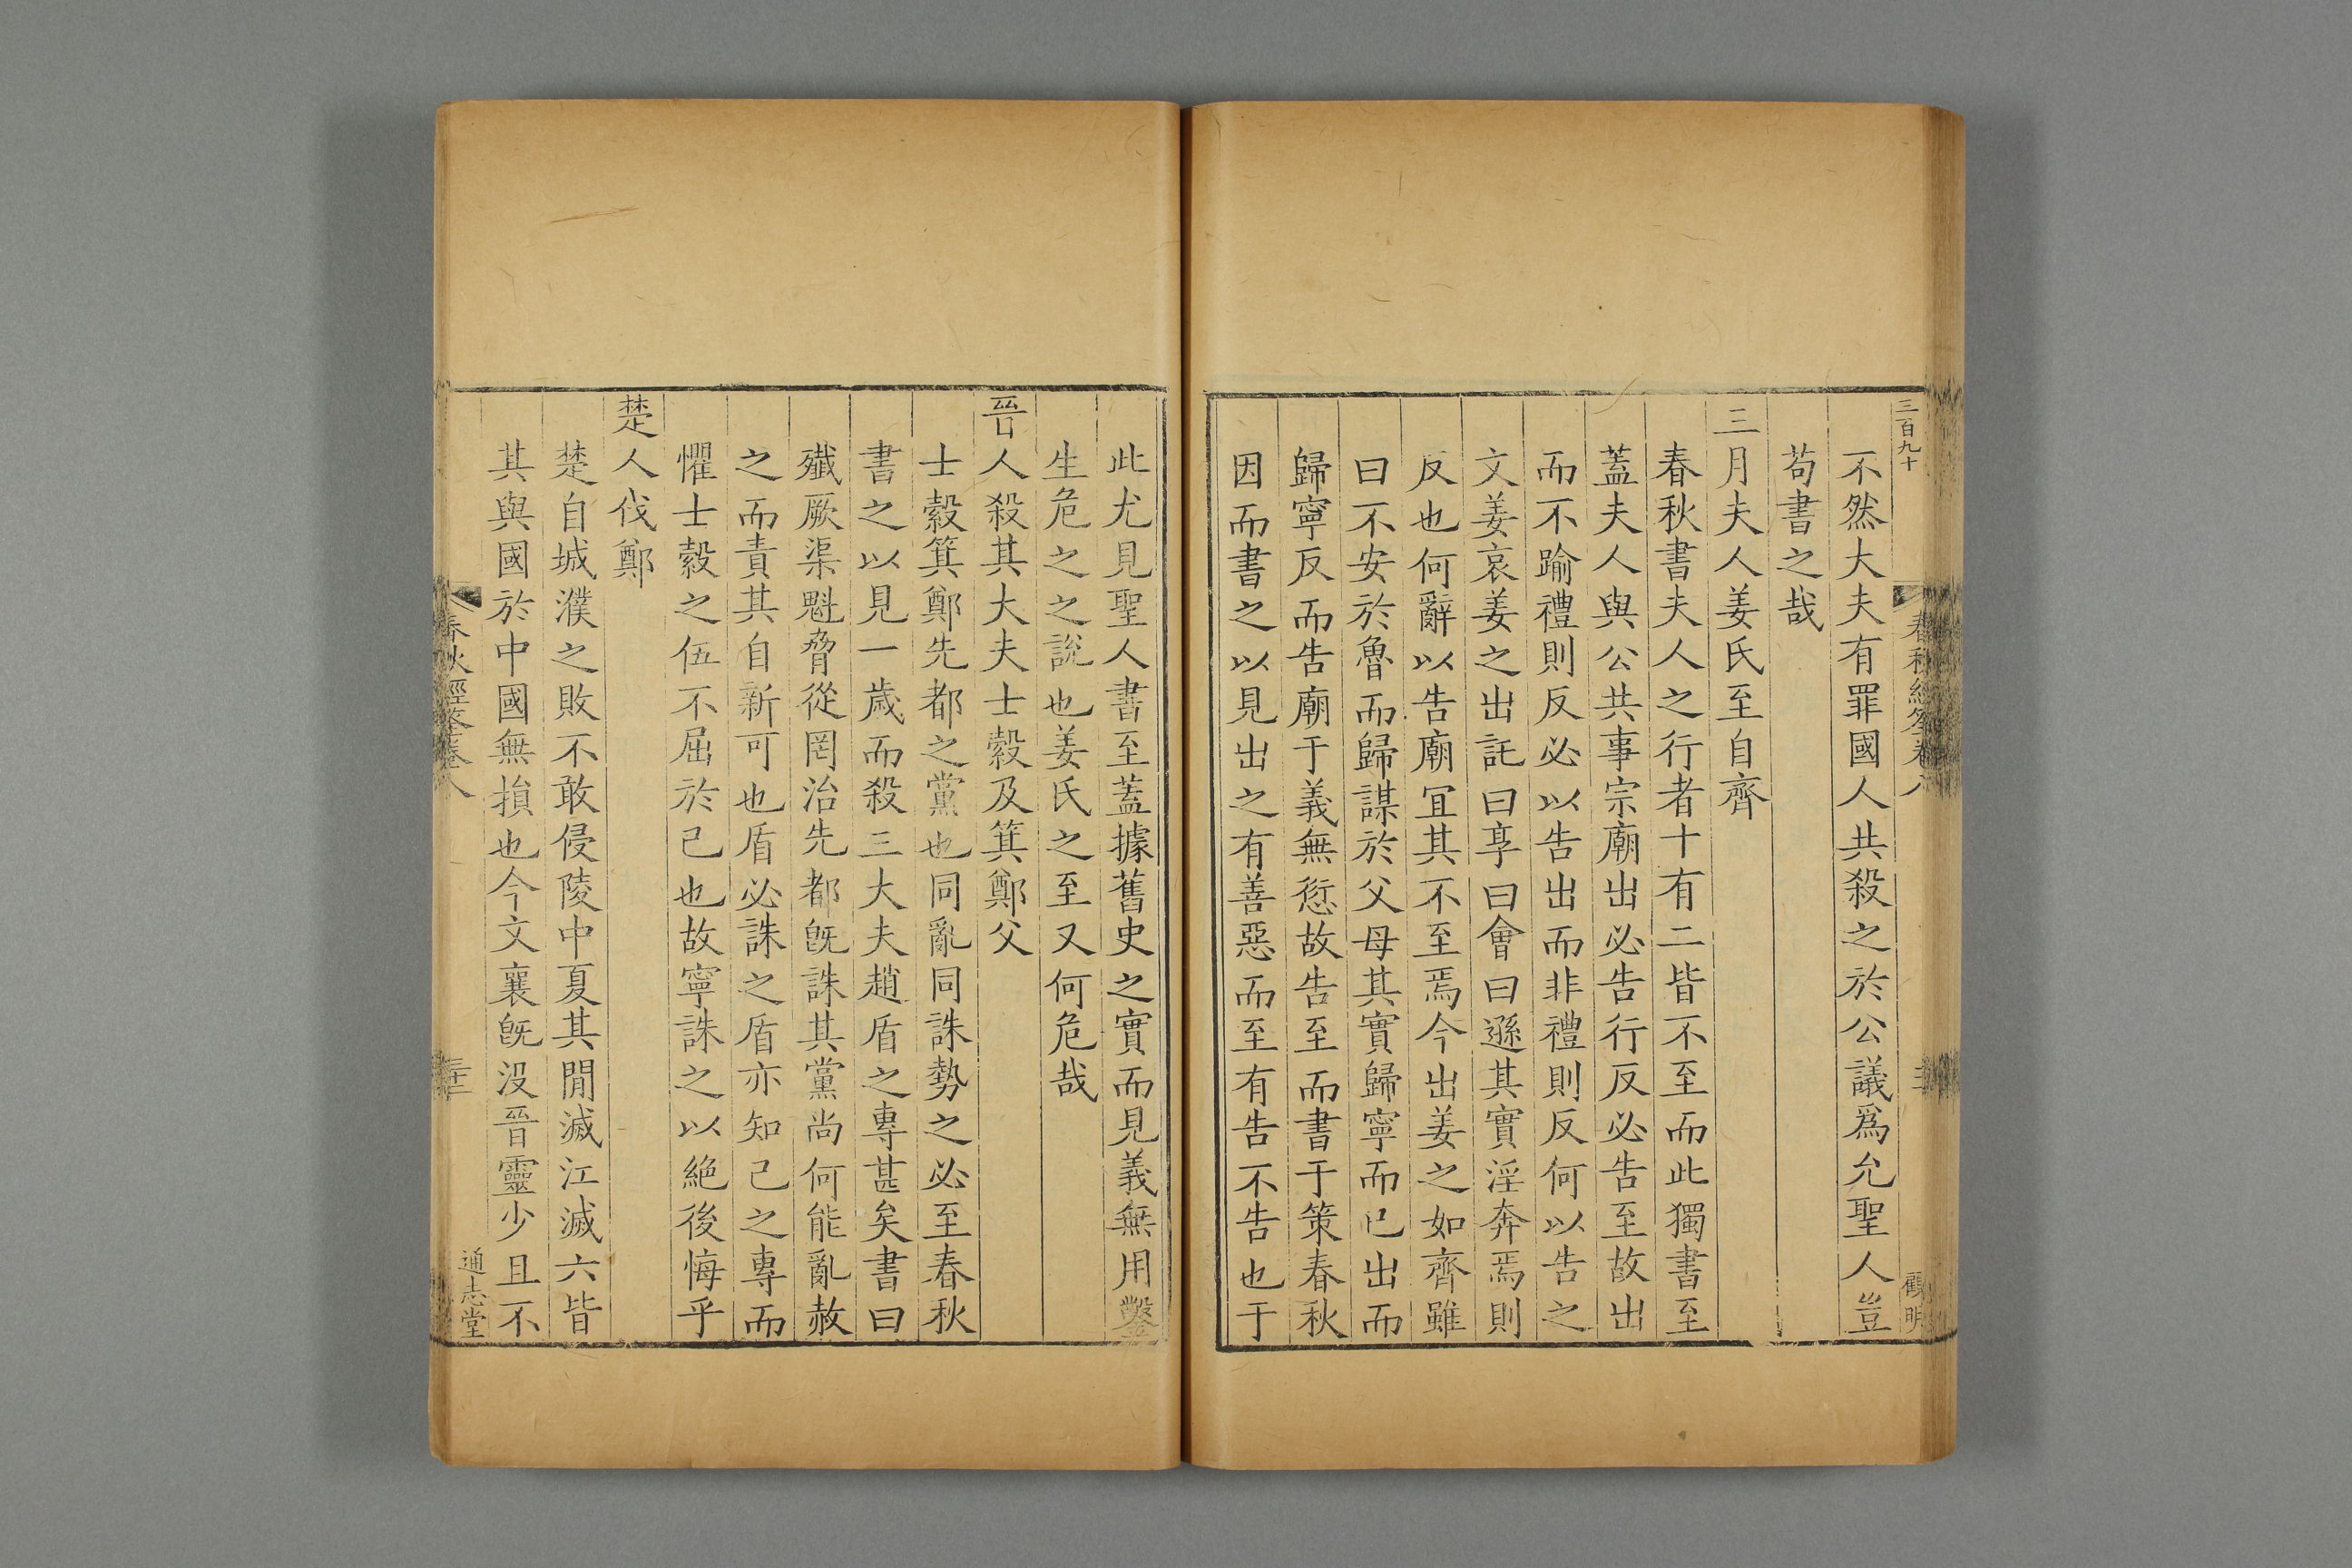 三百九十
春秋經筌卷八
顧明
不然大夫有罪國人共殺之於公議爲允聖人豈
苟書之哉
三月夫人姜氏至自齊
春秋書夫人之行者十有二皆不至而此獨書至
蓋夫人與公共事宗廟出必告行反必告至故出
而不踰禮則反必以告出而非禮則反何以告之
文姜哀姜之出託曰享曰會曰遜其實淫奔焉則
反也何辭以告廟冝其不至焉今出姜之如齊雖
曰不安於魯而歸謀於父母其實歸寧而已出而
歸寧反而告廟于義無愆故告至而書于策春秋
因而書之以見出之有善惡而至有告不告也于
此尤見聖人書至蓋據舊史之實而見義無用鑿
生危之之說也姜氏之至又何危哉
晉人殺其大夫士縠及箕鄭父
士縠箕鄭先都之黨也同亂同誅勢之必至春秋
書之以見一歲而殺三大夫趙盾之專甚矣書曰
殲厥渠魁脅從罔治先都旣誅其黨尚何能亂赦
之而責其自新可也盾必誅之盾亦知己之專而
懼士縠之伍不屈於己也故寧誅之以絕後悔乎
楚人伐鄭
楚自城濮之敗不敢侵陵中夏其閒滅江滅六皆
其與國於中國無損也今文襄旣沒晉靈少且不
春秋經筌卷八
通志堂